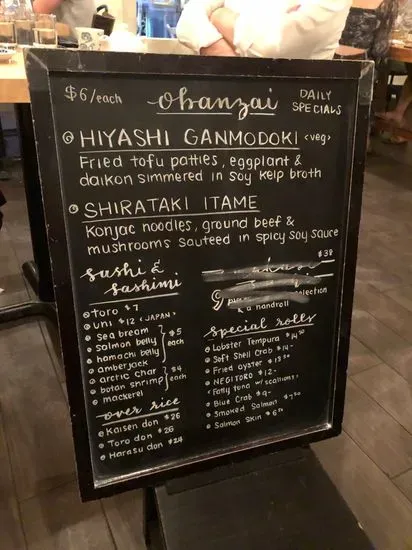 $6/each obanzai DAILY SPECIALS
HIYASHI GANMODOKI <veg>
Fried tofu patties, eggplant &
daikon simmered in soy kelp broth
SHIRATAKI ITAME
Konjac noodles, ground beef &
mushrooms sauteed in spicy soy sauce
sushi &
sashimi
toro $7
uni $12 <JAPAN>
sea bream
salmon belly
hamachi belly
amberjack
$5 each
arctic char
botan shrimp
mackerel
$4 each
over rice
Kaisen don $26
Toro don $26
Harasu don $24
$38
handroll
special rolls
Lobster Tempura $14.50
Soft Shell Crab $14-
Fried oyster $13.50
NEGITORO $12-
Fatty tuna w/ scallions
Blue Crab $9-
Smoked Salmon $7.50
Salmon Skin $6.50